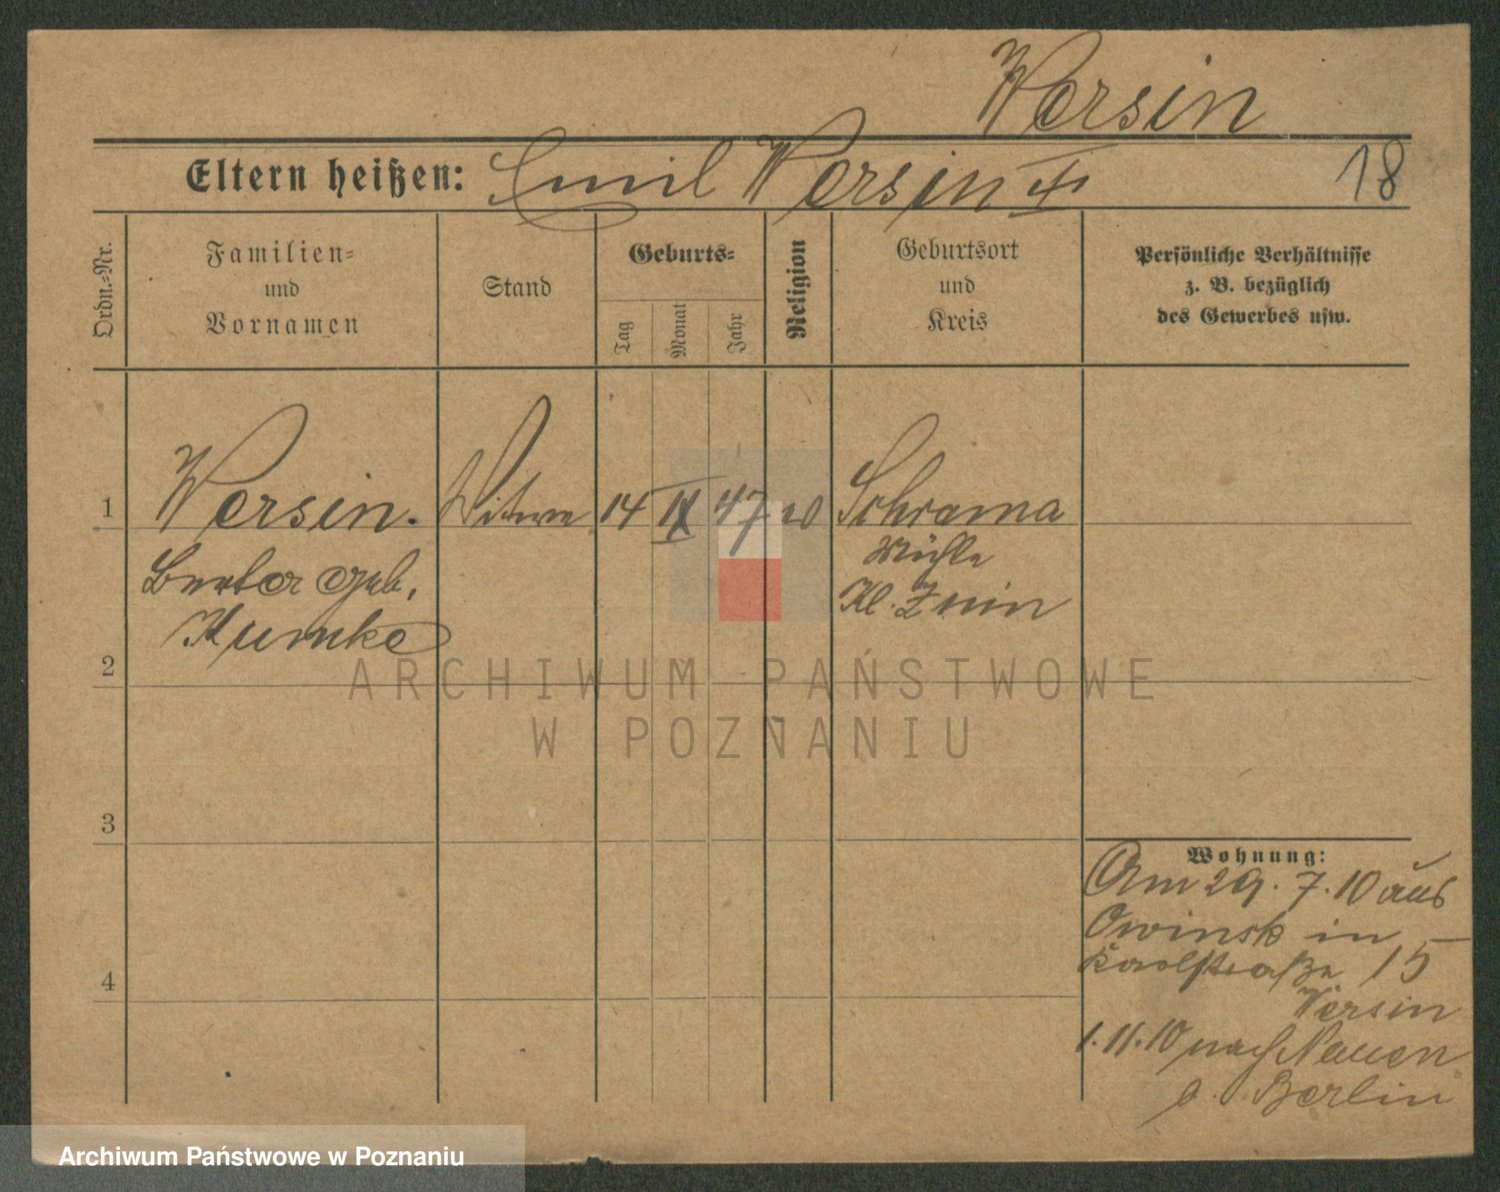 Wersin
Eltern heißen: Emil Wersin †
18
Ordn.-Nr.
Familien-
und
Vornamen
Stand
Geburts-
Tag
Monat
Jahr
Religion
Geburtsort
und
Kreis
Persönliche Verhältnisse
z. B. bezüglich
des Gewerbes usw.
1 Wersin. Witwe 14 47 Schrama
Mühle
geb. Kl. Znin
Kumke
2
ARCHIWUM PAŃSTWOWE
W POZNANIU
3
Wohnung:
Am 29. 7. 10 aus
Owinsk in
Karlstraße 15
4
Wersin
1.11.10 nach Nauen
b. Berlin
Archiwum Państwowe w Poznaniu